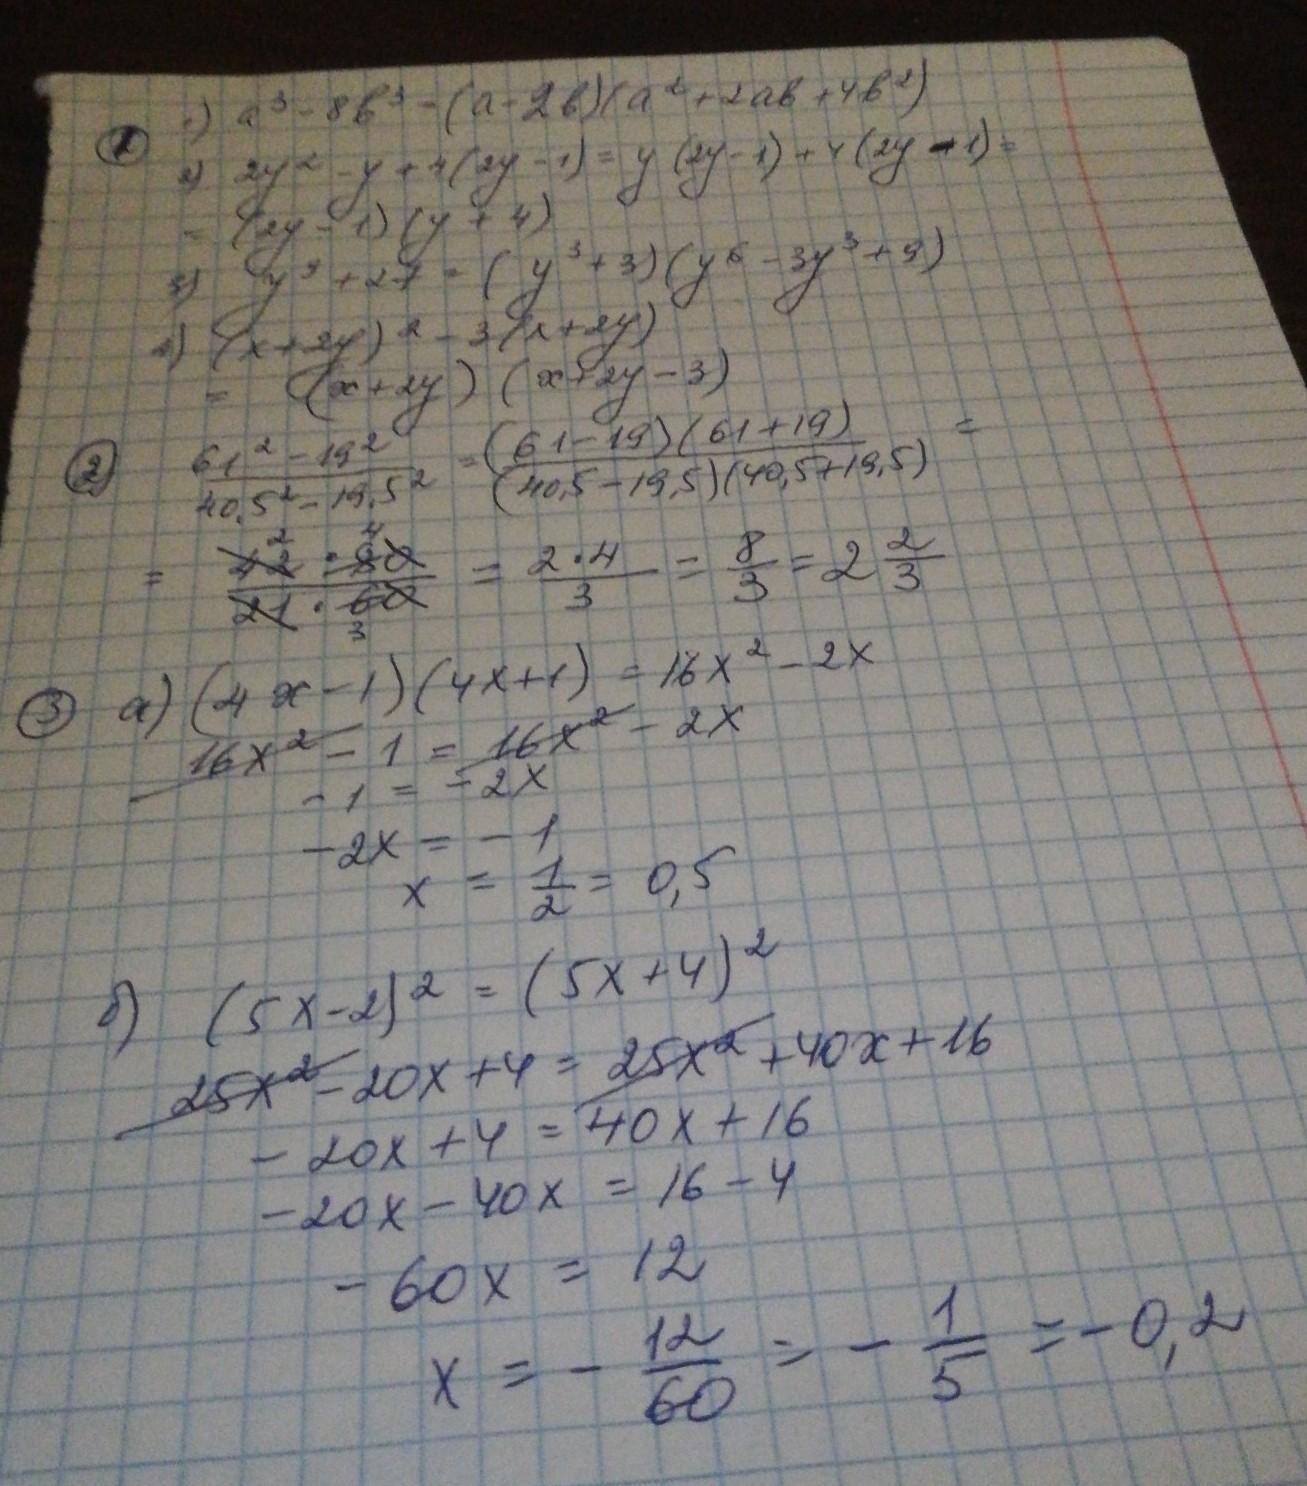 1 1) a³ - 8b³ - (a - 2b)(a² + 2ab + 4b²)
2) 2y² - y + 4(2y - 1) = y(2y - 1) + 4(2y - 1) =
= (2y - 1)(y + 4)
3) y⁹ + 27 = (y³ + 3)(y⁶ - 3y³ + 9)
4) (x + 2y)² - 3(x + 2y)
= (x + 2y)(x + 2y - 3)
2 (61² - 19²)/(40,5² - 19,5²) = ((61 - 19)(61 + 19))/((40,5 - 19,5)(40,5 + 19,5)) =
= (42 2 · 80 4)/(21 · 60 3) = (2 · 4)/3 = 8/3 = 2 2/3
3 а) (4x - 1)(4x + 1) = 16x² - 2x
16x² - 1 = 16x² - 2x
-1 = -2x
-2x = -1
x = 1/2 = 0,5
б) (5x - 2)² = (5x + 4)²
25x² - 20x + 4 = 25x² + 40x + 16
-20x + 4 = 40x + 16
-20x - 40x = 16 - 4
-60x = 12
x = - 12/60 = - 1/5 = -0,2